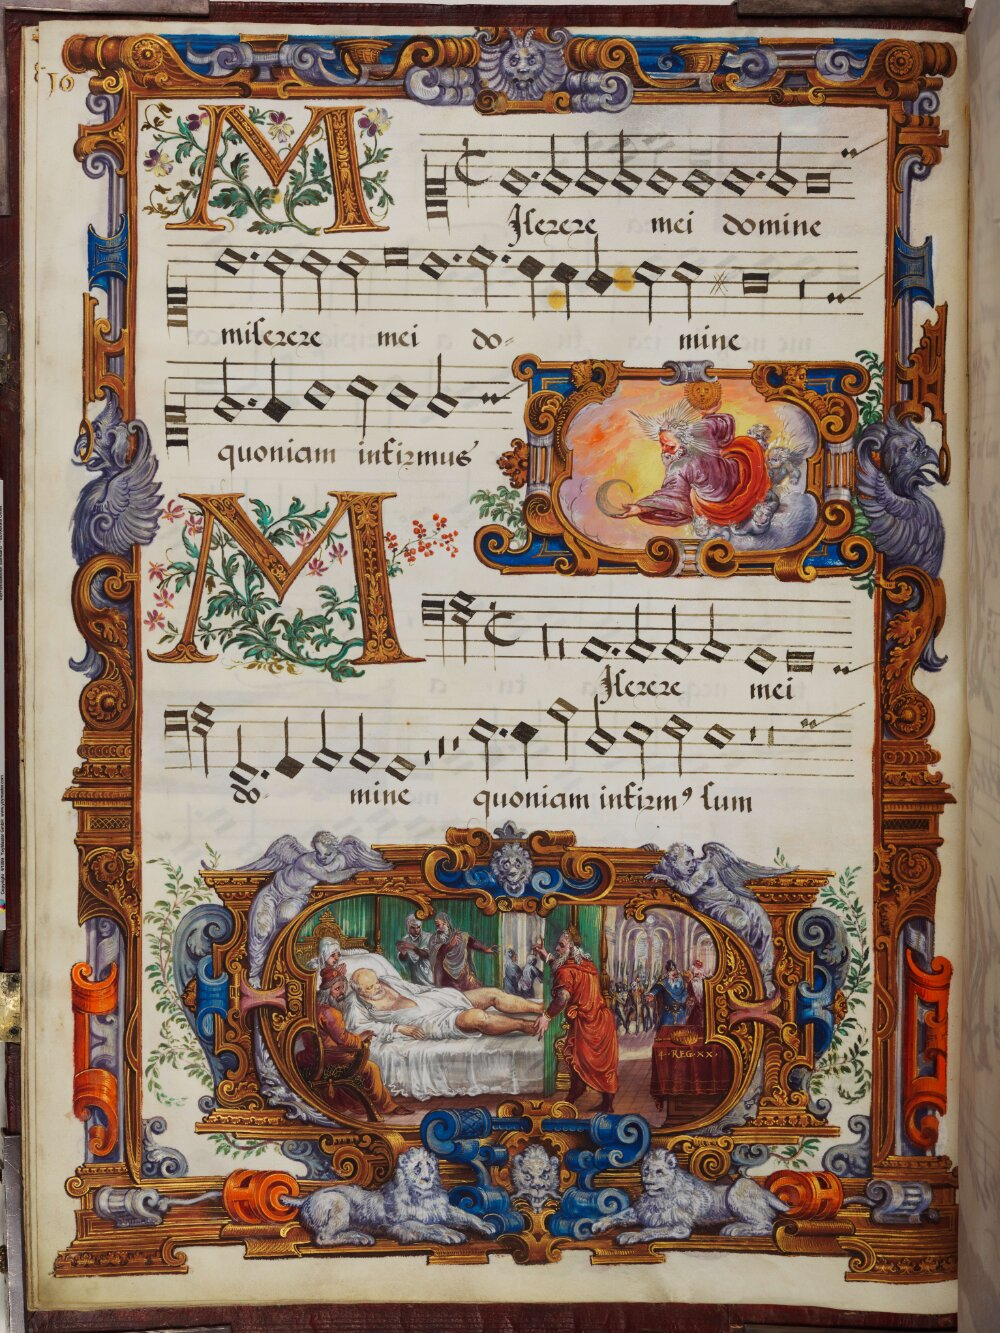 10
Miserere mei domine
miserere mei do= mine
quoniam infirmus
Miserere mei
mine quoniam infirmꝰ sum
4·REG·XX·